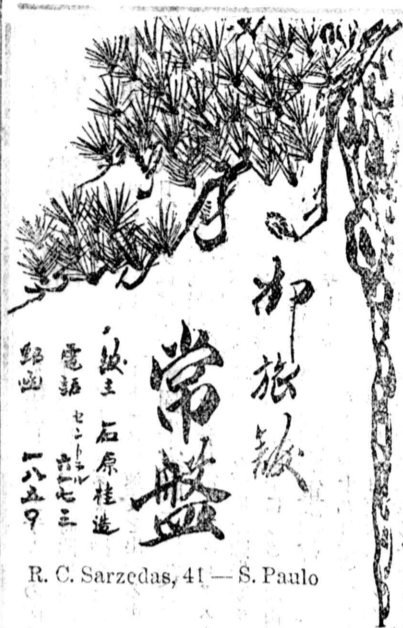 御旅館
常盤
館主 石原桂造
電話 セントラル
郵函
R. C. Sarzedas, 41 — S. Paulo